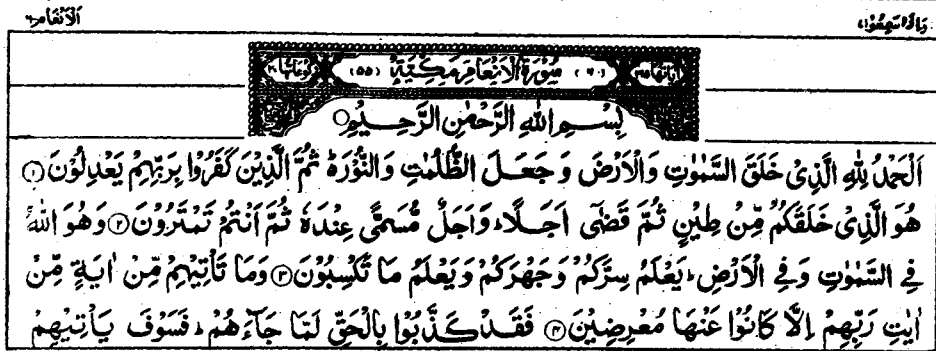 الْاَنْعَام ٦ وَاِذَا سَمِعُوْا ٧
اٰيَاتُهَا ١٦٥ (٦) سُوْرَةُ الْاَنْعَامِ مَكِّيَّةٌ (٥٥) رُكُوْعَاتُهَا ٢٠
بِسْمِ اللّٰهِ الرَّحْمٰنِ الرَّحِيْمِ
اَلْحَمْدُ لِلّٰهِ الَّذِىْ خَلَقَ السَّمٰوٰتِ وَالْاَرْضَ وَجَعَلَ الظُّلُمٰتِ وَالنُّوْرَ ؕ ثُمَّ الَّذِيْنَ كَفَرُوْا بِرَبِّهِمْ يَعْدِلُوْنَ ۝١
هُوَ الَّذِىْ خَلَقَكُمْ مِّنْ طِيْنٍ ثُمَّ قَضٰٓى اَجَلًا ؕ وَاَجَلٌ مُّسَمًّى عِنْدَهٗ ثُمَّ اَنْتُمْ تَمْتَرُوْنَ ۝٢ وَهُوَ اللّٰهُ
فِى السَّمٰوٰتِ وَفِى الْاَرْضِ ؕ يَعْلَمُ سِرَّكُمْ وَجَهْرَكُمْ وَيَعْلَمُ مَا تَكْسِبُوْنَ ۝٣ وَمَا تَاْتِيْهِمْ مِّنْ اٰيَةٍ مِّنْ
اٰيٰتِ رَبِّهِمْ اِلَّا كَانُوْا عَنْهَا مُعْرِضِيْنَ ۝٤ فَقَدْ كَذَّبُوْا بِالْحَقِّ لَمَّا جَآءَهُمْ ؕ فَسَوْفَ يَاْتِيْهِمْ